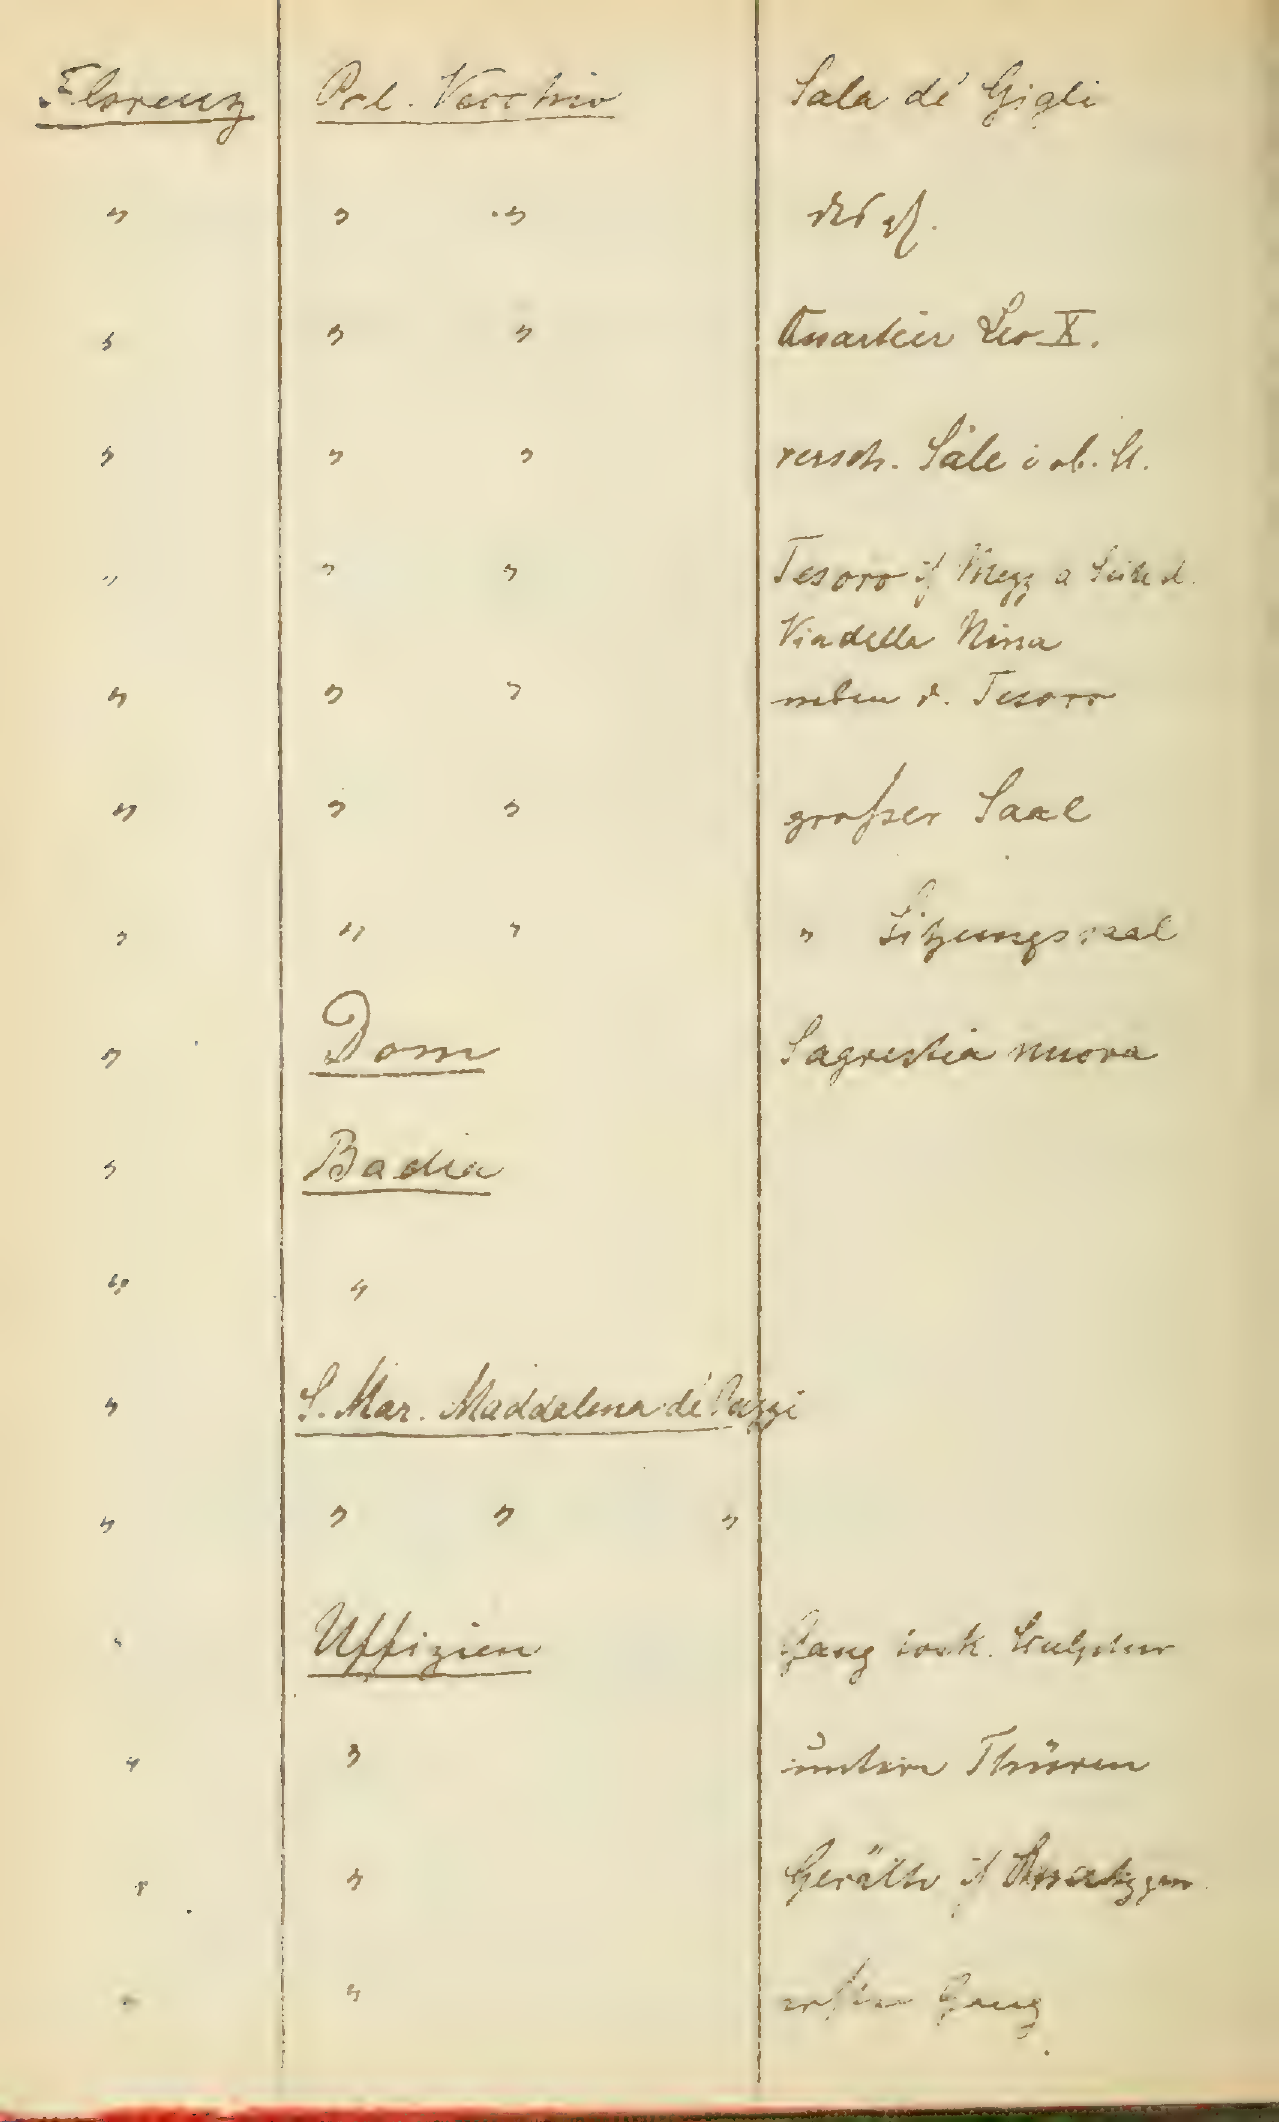 Florenz Pal. Vecchio Sala dé Gigli
" " " desgl.
" " " Quartier Leo X.
" " " versch. Säle i ob. St.
" " " Tesoro if Mezz a
Via della Ninna
" " " neben d. Tesoro
" " " großer Saal
" " " " Sitzungssaal
" Dom Sagrestia nuova
" Badia
" "
" S. Mar. Maddalena dé Pazzi
" " " "
" Uffizien Gang Skulptur
" " Thüren
" " Geräth if
" " Gang